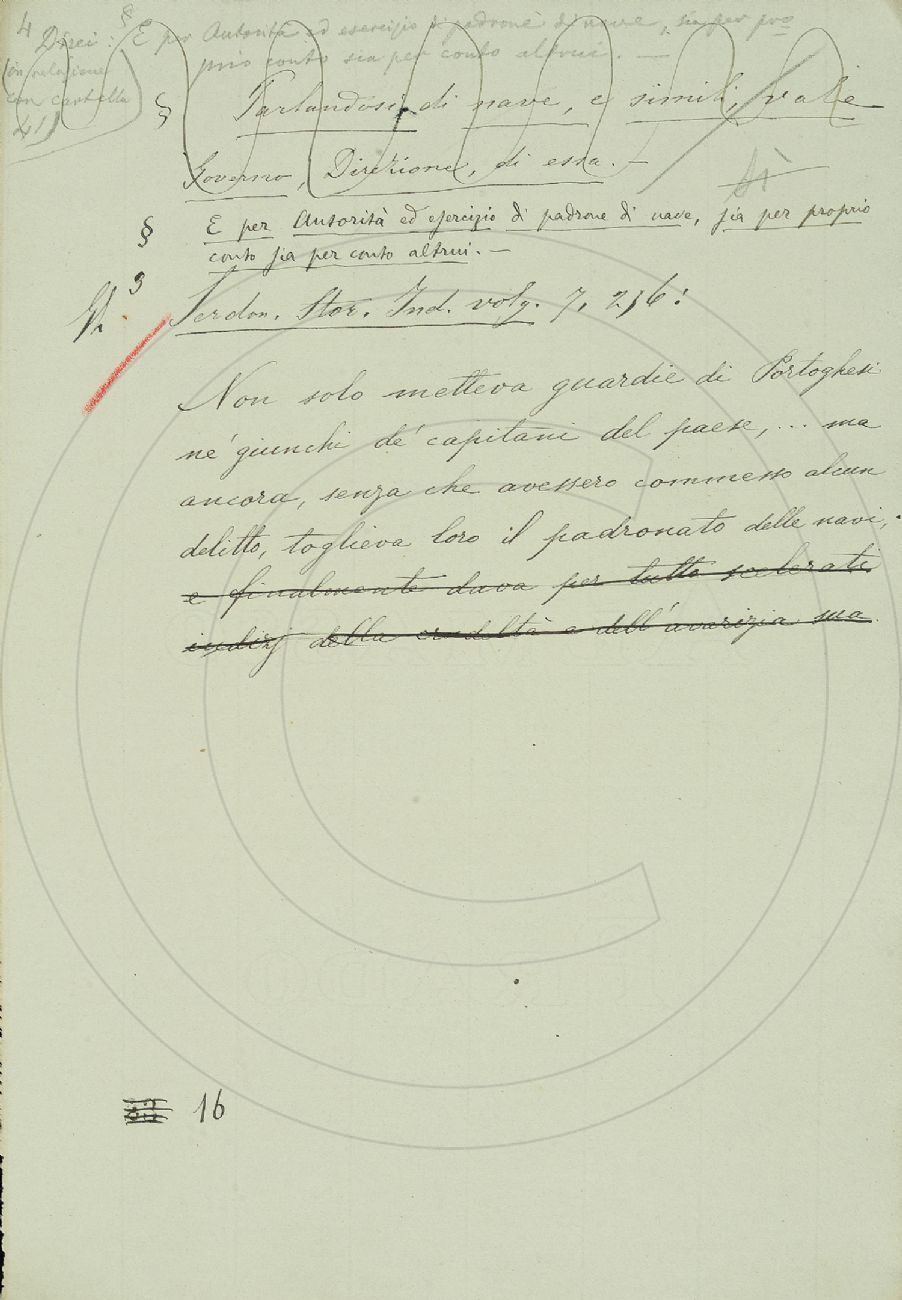 4 Direi: § E per Autorità ed esercizio di padrone di nave, sia per pro
prio conto sia per conto altrui. —
in relazione
con cartella
41)
§ Parlandosi di nave, e simili, vale
Governo, Direzione, di essa. —
sì
§ E per Autorità ed esercizio di padrone di nave, sia per proprio
conto sia per conto altrui. —
3 Serdon. Stor. Ind. volg. 7, 276:
Non solo metteva guardie di Portoghesi
ne' giunchi de' capitani del paese, ... ma
ancora, senza che avessero commesso alcun
delitto, toglieva loro il padronato delle navi,
e finalmente dava per tutto scelerati
indizj della crudeltà e dell'avarizia sua.
16